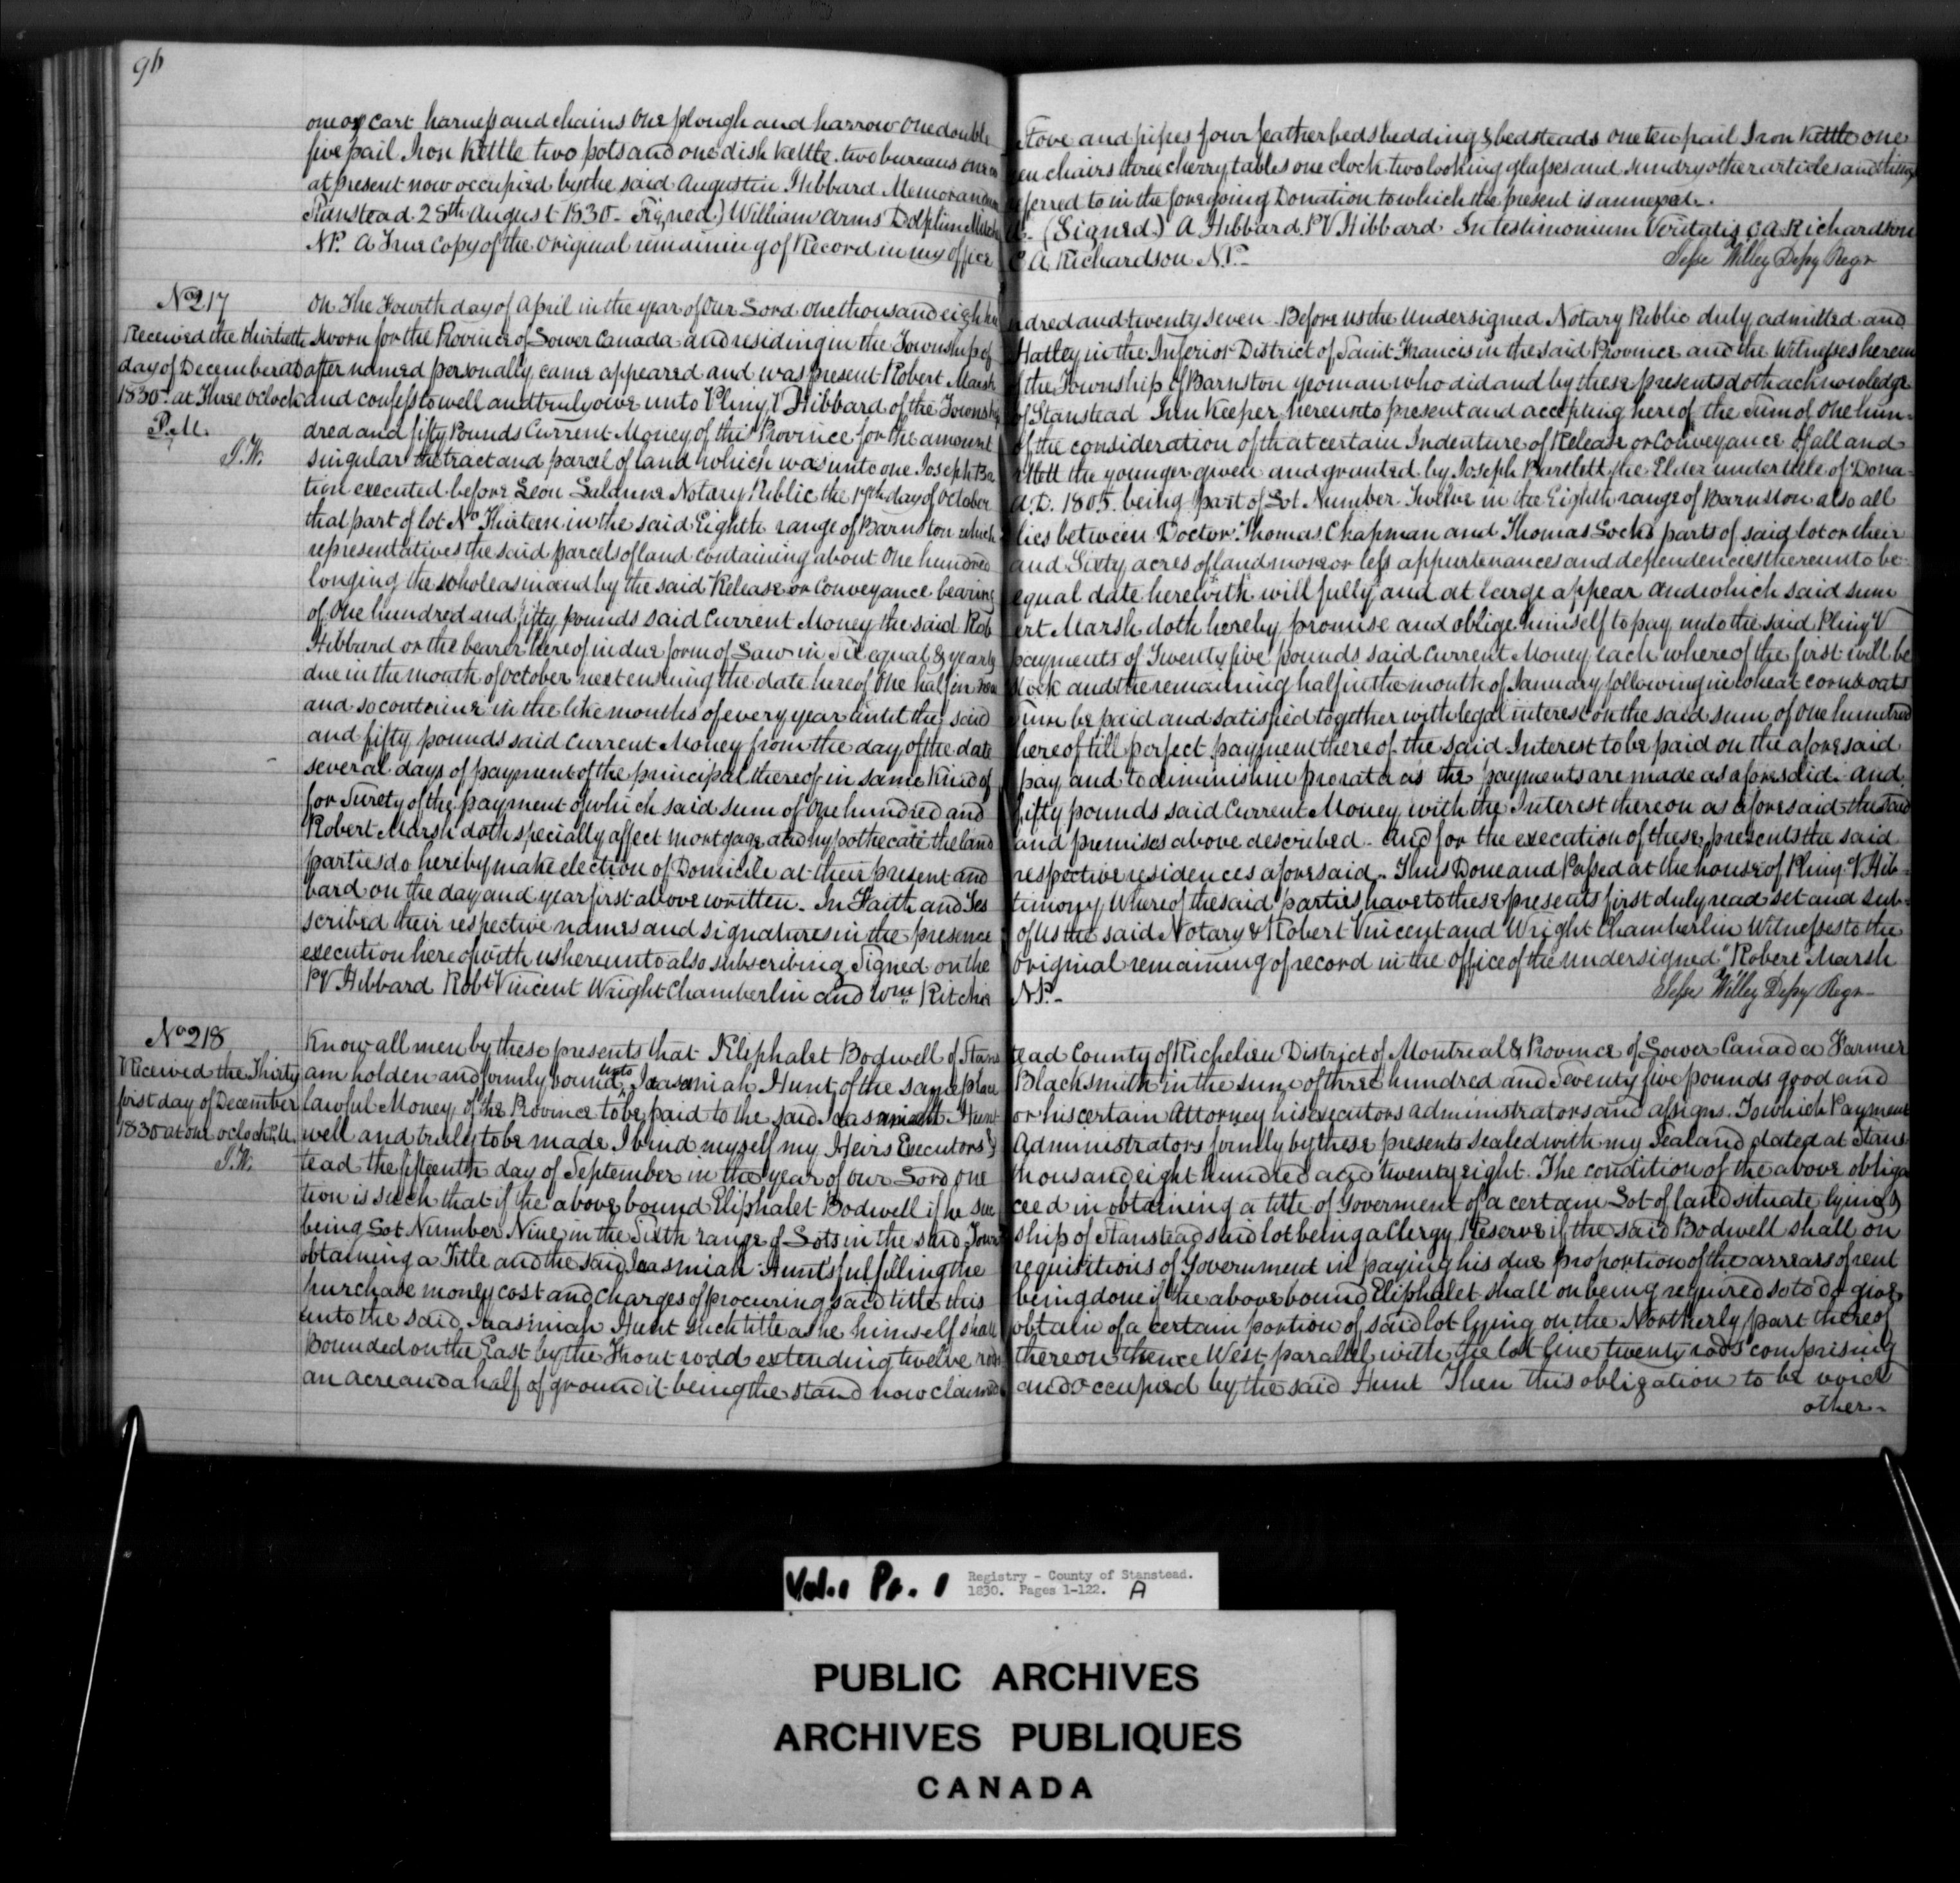 96
one ox cart harness and chains One plough and harrow One double Stove and pipes four feather beds bedding & bedsteads one ten pail Iron Kettle one
five pail Iron Kettle two pots and one dish kettle two bureaus chairs three cherry tables one clock two looking glasses and sundry other articles and things
at present now occupied by the said Augustin Hibbard Memorandum referred to in the foregoing Donation to which the present is annexed.
Stanstead 28th August 1830 - Signed) William Arms Dolphus (Signed) A Hibbard. P V Hibbard. In testimonium Veritatis C A Richardson
N.P. A True Copy of the Original remaining of Record in my Office C A. Richardson N.P.-
Jesse Willey Depy Regr
No 217
Received the thirtieth
day of December AD
1830 - at Three oClock
P.M.
J.W.
On The Fourth day of April in the year of Our Lord One thousand eight hundred and twenty seven Before us the Undersigned Notary Public duly admitted and
sworn for the Province of Lower Canada and residing in the Township of Hatley in the Inferior District of Saint Francis in the said Province and the Witnesses herein
after named personally came appeared and was present Robert Marsh of the Township of Barnston yeoman who did and by these presents doth acknowledge
and confess to well and truly owe unto Pliny V Hibbard of the Township of Stanstead Inn Keeper hereunto present and accepting hereof the Sum of One hun-
dred and fifty Pounds Current Money of this Province for the amount of the consideration of that certain Indenture of Release or Conveyance of all and
singular the tract and parcel of land which was unto one Joseph Bartlett the younger given and granted by Joseph Bartlett the Elder under title of Dona-
tion executed before Leon Lalanne Notary Public the 17th day of October A.D. 1805. being part of Lot Number Twelve in the Eighth range of Barnston also all
that part of lot No Thirteen in the said Eighth range of Barnston which lies between Doctor Thomas Chapman and Thomas Locke parts of said lot or their
representatives the said parcels of land containing about One hundred and Sixty acres of land more or less appurtenances and dependencies thereunto be-
longing the whole as in and by the said Release or Conveyance bearing equal date herewith will fully and at large appear and which said sum
of One hundred and fifty pounds said Current Money the said Robert Marsh doth hereby promise and oblige himself to pay unto the said Pliny V
Hibbard or the bearer hereof in due form of Law in Six equal & yearly payments of Twenty five pounds said Current Money each whereof the first will be
due in the month of October next ensuing the date hereof One half in neat stock and the remaining half in the month of January following in wheat corn & oats
and so continue in the like months of every year until the said Sum be paid and satisfied together with legal interest on the said sum of One hundred
and fifty pounds said Current Money from the day of the date hereof till perfect payment thereof the said Interest to be paid on the aforesaid
several days of payment of the principal thereof in same kind of pay and to diminish in prorata as the payments are made as aforesaid. and
for Surety of the payment of which said sum of One hundred and fifty pounds said Current Money with the Interest thereon as aforesaid the said
Robert Marsh doth specially affect mortgage and hypothecate the land and premises above described - And for the execution of these presents the said
parties do hereby make election of Domicile at their present and respective residences aforesaid. Thus Done and Passed at the house of Pliny V. Hib-
bard on the day and year first above written. In Faith and Testimony Whereof the said parties have to these presents first duly read set and sub-
scribed their respective names and signatures in the presence of Us the said Notary & Robert Vincent and Wright Chamberlin Witnesses to the
execution hereof with us hereunto also subscribing Signed on the original remaining of record in the office of the undersigned "Robert Marsh
P V Hibbard Robt Vincent Wright Chamberlin and Wm Ritchie N.P.-
Jesse Willey Depy Regr
No 218
Received the Thirty
first day of December
1830 at one oclock P.M.
J.W.
Know all men by these presents that I Eliphalet Bodwell of Stanstead County of Richelieu District of Montreal & Province of Lower Canada Farmer
am holden and firmly bound unto Jaasmiah Hunt of the same place Blacksmith in the sum of three hundred and Seventy five pounds good and
lawful Money of the Province to be paid to the said Jaasmiah Hunt or his certain Attorney his executors administrators and assigns. To which Payment
well and truly to be made I bind myself my Heirs Executors & Administrators firmly by these presents sealed with my Seal and dated at Stans
tead the fifteenth day of September in the year of our Lord one thousand eight hundred and twenty eight. The condition of the above obliga
tion is such that if the above bound Eliphalet Bodwell if he succeed in obtaining a title of Goverment of a certain Lot of land situate lying &
being Lot Number Nine in the Sixth range of Lots in the said Township of Stanstead said lot being a Clergy Reserve if the said Bodwell shall on
obtaining a Title and the said Jaasmiah Hunts fulfilling the requisitions of Government in paying his due proportion of the arrears of rent
purchase money cost and charges of procuring said title this being done if the above bound Eliphalet shall on being required so to do give
unto the said Jaasmiah Hunt such title as he himself shall obtain of a certain portion of said lot lying on the Northerly part thereof
Bounded on the East by the Thout rodd extending twelve rods thereon thence West parallel with the lot line twenty rods comprising
an acre and a half of ground it being the stand now claimed and occupied by the said Hunt Then this obligation to be void
other-
Vol. 1 Pr. 1
Registry - County of Stanstead.
1830. Pages 1-122. A
PUBLIC ARCHIVES
ARCHIVES PUBLIQUES
CANADA